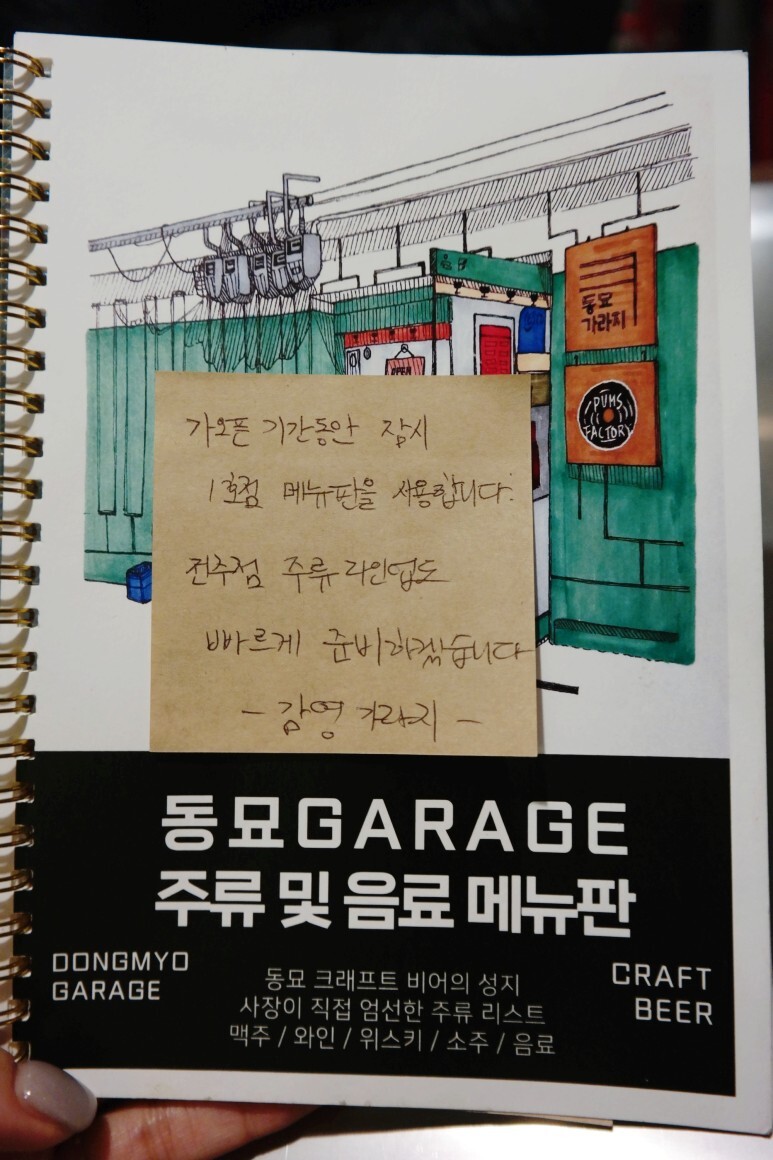 OPEN
동묘
가라지
PUMS
FACTORY
가오픈 기간동안 잠시
1호점 메뉴판을 사용합니다.
전주점 주류 라인업도
빠르게 준비하겠습니다
- 감영 가라지 -
동묘GARAGE
주류 및 음료 메뉴판
DONGMYO
GARAGE
동묘 크래프트 비어의 성지
사장이 직접 엄선한 주류 리스트
맥주 / 와인 / 위스키 / 소주 / 음료
CRAFT
BEER